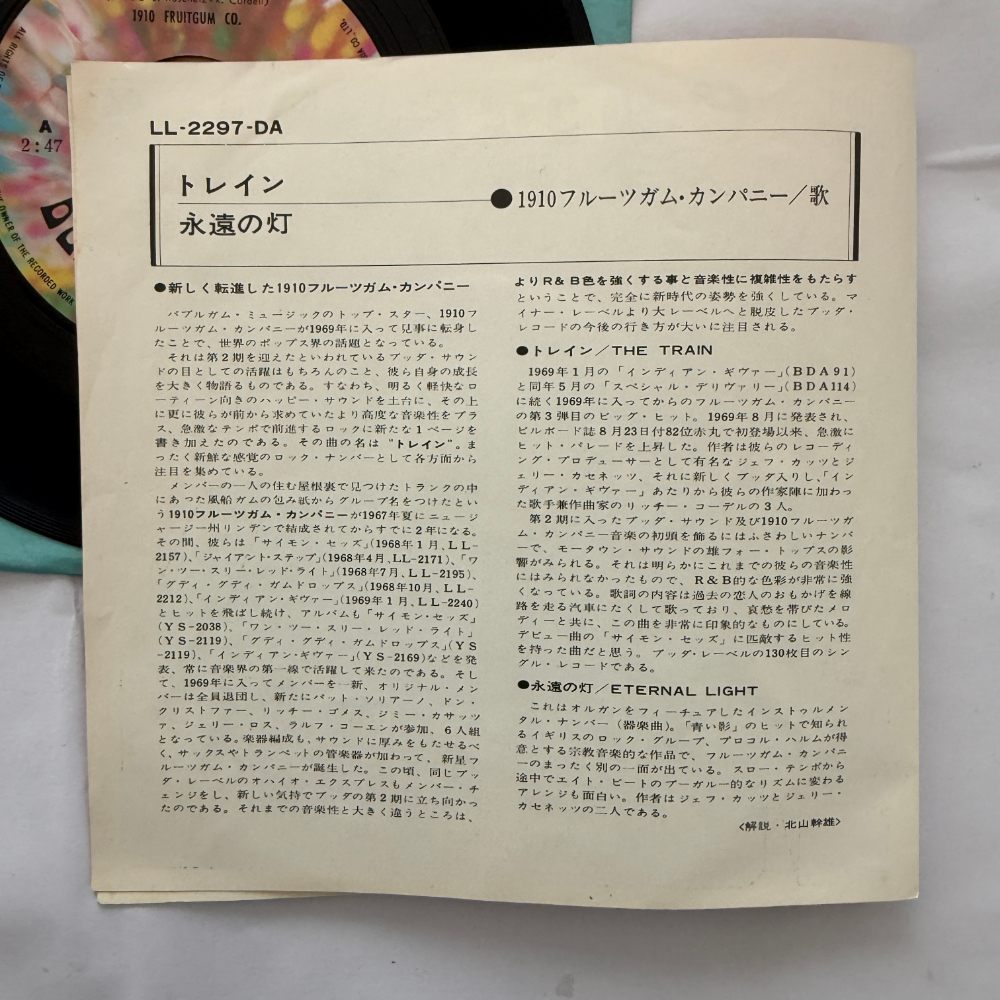 1910 FRUITGUM CO.
A
2:47
OWNER OF THE RECORDED WORK
LL-2297-DA
トレイン
永遠の灯
●1910フルーツガム・カンパニー/歌
●新しく転進した1910フルーツガム・カンパニー
バブルガム・ミュージックのトップ・スター、1910フ
ルーツガム・カンパニーが1969年に入って見事に転身し
たことで、世界のポップス界の話題となっている。
それは第2期を迎えたといわれているブッダ・サウン
ドの目としての活躍はもちろんのこと、彼ら自身の成長
を大きく物語るものである。すなわち、明るく軽快なロ
ーティーン向きのハッピー・サウンドを土台に、その上
に更に彼らが前から求めていたより高度な音楽性をプラ
ス、急激なテンポで前進するロックに新たな1ページを
書き加えたのである。その曲の名は"トレイン"。ま
ったく新鮮な感覚のロック・ナンバーとして各方面から
注目を集めている。
メンバーの一人の住む屋根裏で見つけたトランクの中
にあった風船ガムの包み紙からグループ名をつけたとい
う1910フルーツガム・カンパニーが1967年夏にニュージ
ャージー州リンデンで結成されてからすでに2年になる。
その間、彼らは「サイモン・セッズ」(1968年1月、LL-
2157)、「ジャイアント・ステップ」(1968年4月、LL-2171)、「ワ
ン・ツー・スリー・レッド・ライト」(1968年7月、LL-2195)、
「グディ・グディ・ガムドロップス」(1968年10月、LL-
2212)、「インディアン・ギヴァー」(1969年1月、LL-2240)
とヒットを飛ばし続け、アルバムも「サイモン・セッズ」
(YS-2038)、「ワン・ツー・スリー・レッド・ライト」
(YS-2119)、「グディ・グディ・ガムドロップス」(YS
-2119)、「インディアン・ギヴァー」(YS-2169)などを発
表、常に音楽界の第一線で活躍して来たのである。そし
て、1969年に入ってメンバーを一新、オリジナル・メン
バーは全員退団し、新たにパット・ソリアーノ、ドン・
クリストファー、リッチー・ゴメス、ジミー・カサッツ
ァ、ジェリー・ロス、ラルフ・コーエンが参加、6人組
となっている。楽器編成も、サウンドに厚みをもたせるべ
く、サックスやトランペットの管楽器が加わって、新星フ
ルーツガム・カンパニーが誕生した。この頃、同じブッ
ダ・レーベルのオハイオ・エクスプレスもメンバー・チ
ェンジをし、新しい気持でブッダの第2期に立ち向かっ
たのである。それまでの音楽性と大きく違うところは、
よりR&B色を強くする事と音楽性に複雑性をもたらす
ということで、完全に新時代の姿勢を強くしている。マ
イナー・レーベルより大レーベルへと脱皮したブッダ・
レコードの今後の行き方が大いに注目される。
●トレイン/THE TRAIN
1969年1月の「インディアン・ギヴァー」(BDA91)
と同年5月の「スペシャル・デリヴァリー」(BDA114)
に続く1969年に入ってからのフルーツガム・カンパニー
の第3弾目のビッグ・ヒット。1969年8月に発表され、
ビルボード誌8月23日付82位赤丸で初登場以来、急激に
ヒット・パレードを上昇した。作者は彼らのレコーディ
ング・プロデューサーとして有名なジェフ・カッツとジ
ェリー・カセネッツ、それに新しくブッダ入りし、「イン
ディアン・ギヴァー」あたりから彼らの作家陣に加わっ
た歌手兼作曲家のリッチー・コーデルの3人。
第2期に入ったブッダ・サウンド及び1910フルーツガ
ム・カンパニー音楽の初頭を飾るにはふさわしいナンバ
ーで、モータウン・サウンドの雄フォー・トップスの影
響がみられる。それは明らかにこれまでの彼らの音楽性
にはみられなかったもので、R&B的な色彩が非常に強
くなっている。歌詞の内容は過去の恋人のおもかげを線
路を走る汽車にたくして歌っており、哀愁を帯びたメロ
ディーと共に、この曲を非常に印象的なものにしている。
デビュー曲の「サイモン・セッズ」に匹敵するヒット性
を持った曲だと思う。ブッダ・レーベルの130枚目のシン
グル・レコードである。
●永遠の灯/ETERNAL LIGHT
これはオルガンをフィーチュアしたインストゥルメン
タル・ナンバー(器楽曲)。「青い影」のヒットで知られ
るイギリスのロック・グループ、プロコル・ハルムが得
意とする宗教音楽的な作品で、フルーツガム・カンパニ
ーのまったく別の一面が出ている。スロー・テンポから
途中でエイト・ビートのブーガルー的なリズムに変わる
アレンジも面白い。作者はジェフ・カッツとジェリー・
カセネッツの二人である。
〈解説・北山幹雄〉